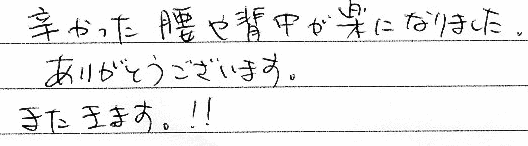 辛かった腰や背中が楽になりました。
ありがとうございます。
またきます。!!